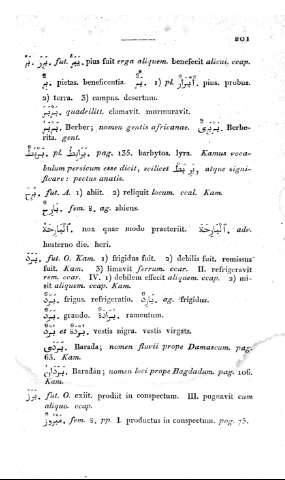 201
بَرَّ. بَرِرَ. fut. يَبَرُّ. pius fuit erga aliquem. benefecit alicui. ccap.
بِرٌّ. pietas. beneficentia. بَرٌّ. 1) pl. أَبْرَارٌ. pius. probus.
2) terra. 3) campus. desertum.
بَرْبَرَ. quadrilitt. clamavit. murmuravit.
بَرْبَرٌ. Berber; nomen gentis africanae. بَرْبَرِيٌّ. Berbe-
rita. gent.
بَرْبَطٌ. pl. بَرَابِطُ. pag. 135. barbytos. lyra. Kamus voca-
bulum persicum esse dicit, scilicet بر بط, atque signi-
ficare: pectus anatis.
بَرِحَ. fut. A. 1) abiit. 2) reliquit locum. ccal. Kam.
بَارِحٌ. fem. 8. ag. abiens.
اَلْبَارِحَةُ. nox quae modo praeteriit. اَلْبَارِحَةَ. adv.
hesterno die. heri.
بَرَدَ. fut. O. Kam. 1) frigidus fuit. 2) debilis fuit. remissus
fuit. Kam. 3) limavit ferrum. ccar. II. refrigeravit
rem. ccar. IV. 1) debilem effecit aliquem. ccap. 2) mi-
sit aliquem. ccap. Kam.
بَرْدٌ. frigus. refrigeratio. بَارِدٌ. ag. frigidus.
بَرَدٌ. grando. بُرَادَةٌ. ramentum.
بُرْدٌ et بُرْدَةٌ. vestis nigra. vestis virgata.
بَرَدَى. Barada; nomen fluvii prope Damascum. pag.
63. Kam.
بَرَدَانُ. Baradân; nomen loci prope Bagdadum. pag. 106.
Kam.
بَرَزَ. fut. O. exiit. prodiit in conspectum. III. pugnavit cum
aliquo. ccap.
مَبْرُوزٌ. fem. 8. pp. I. productus in conspectum. pag. 75.